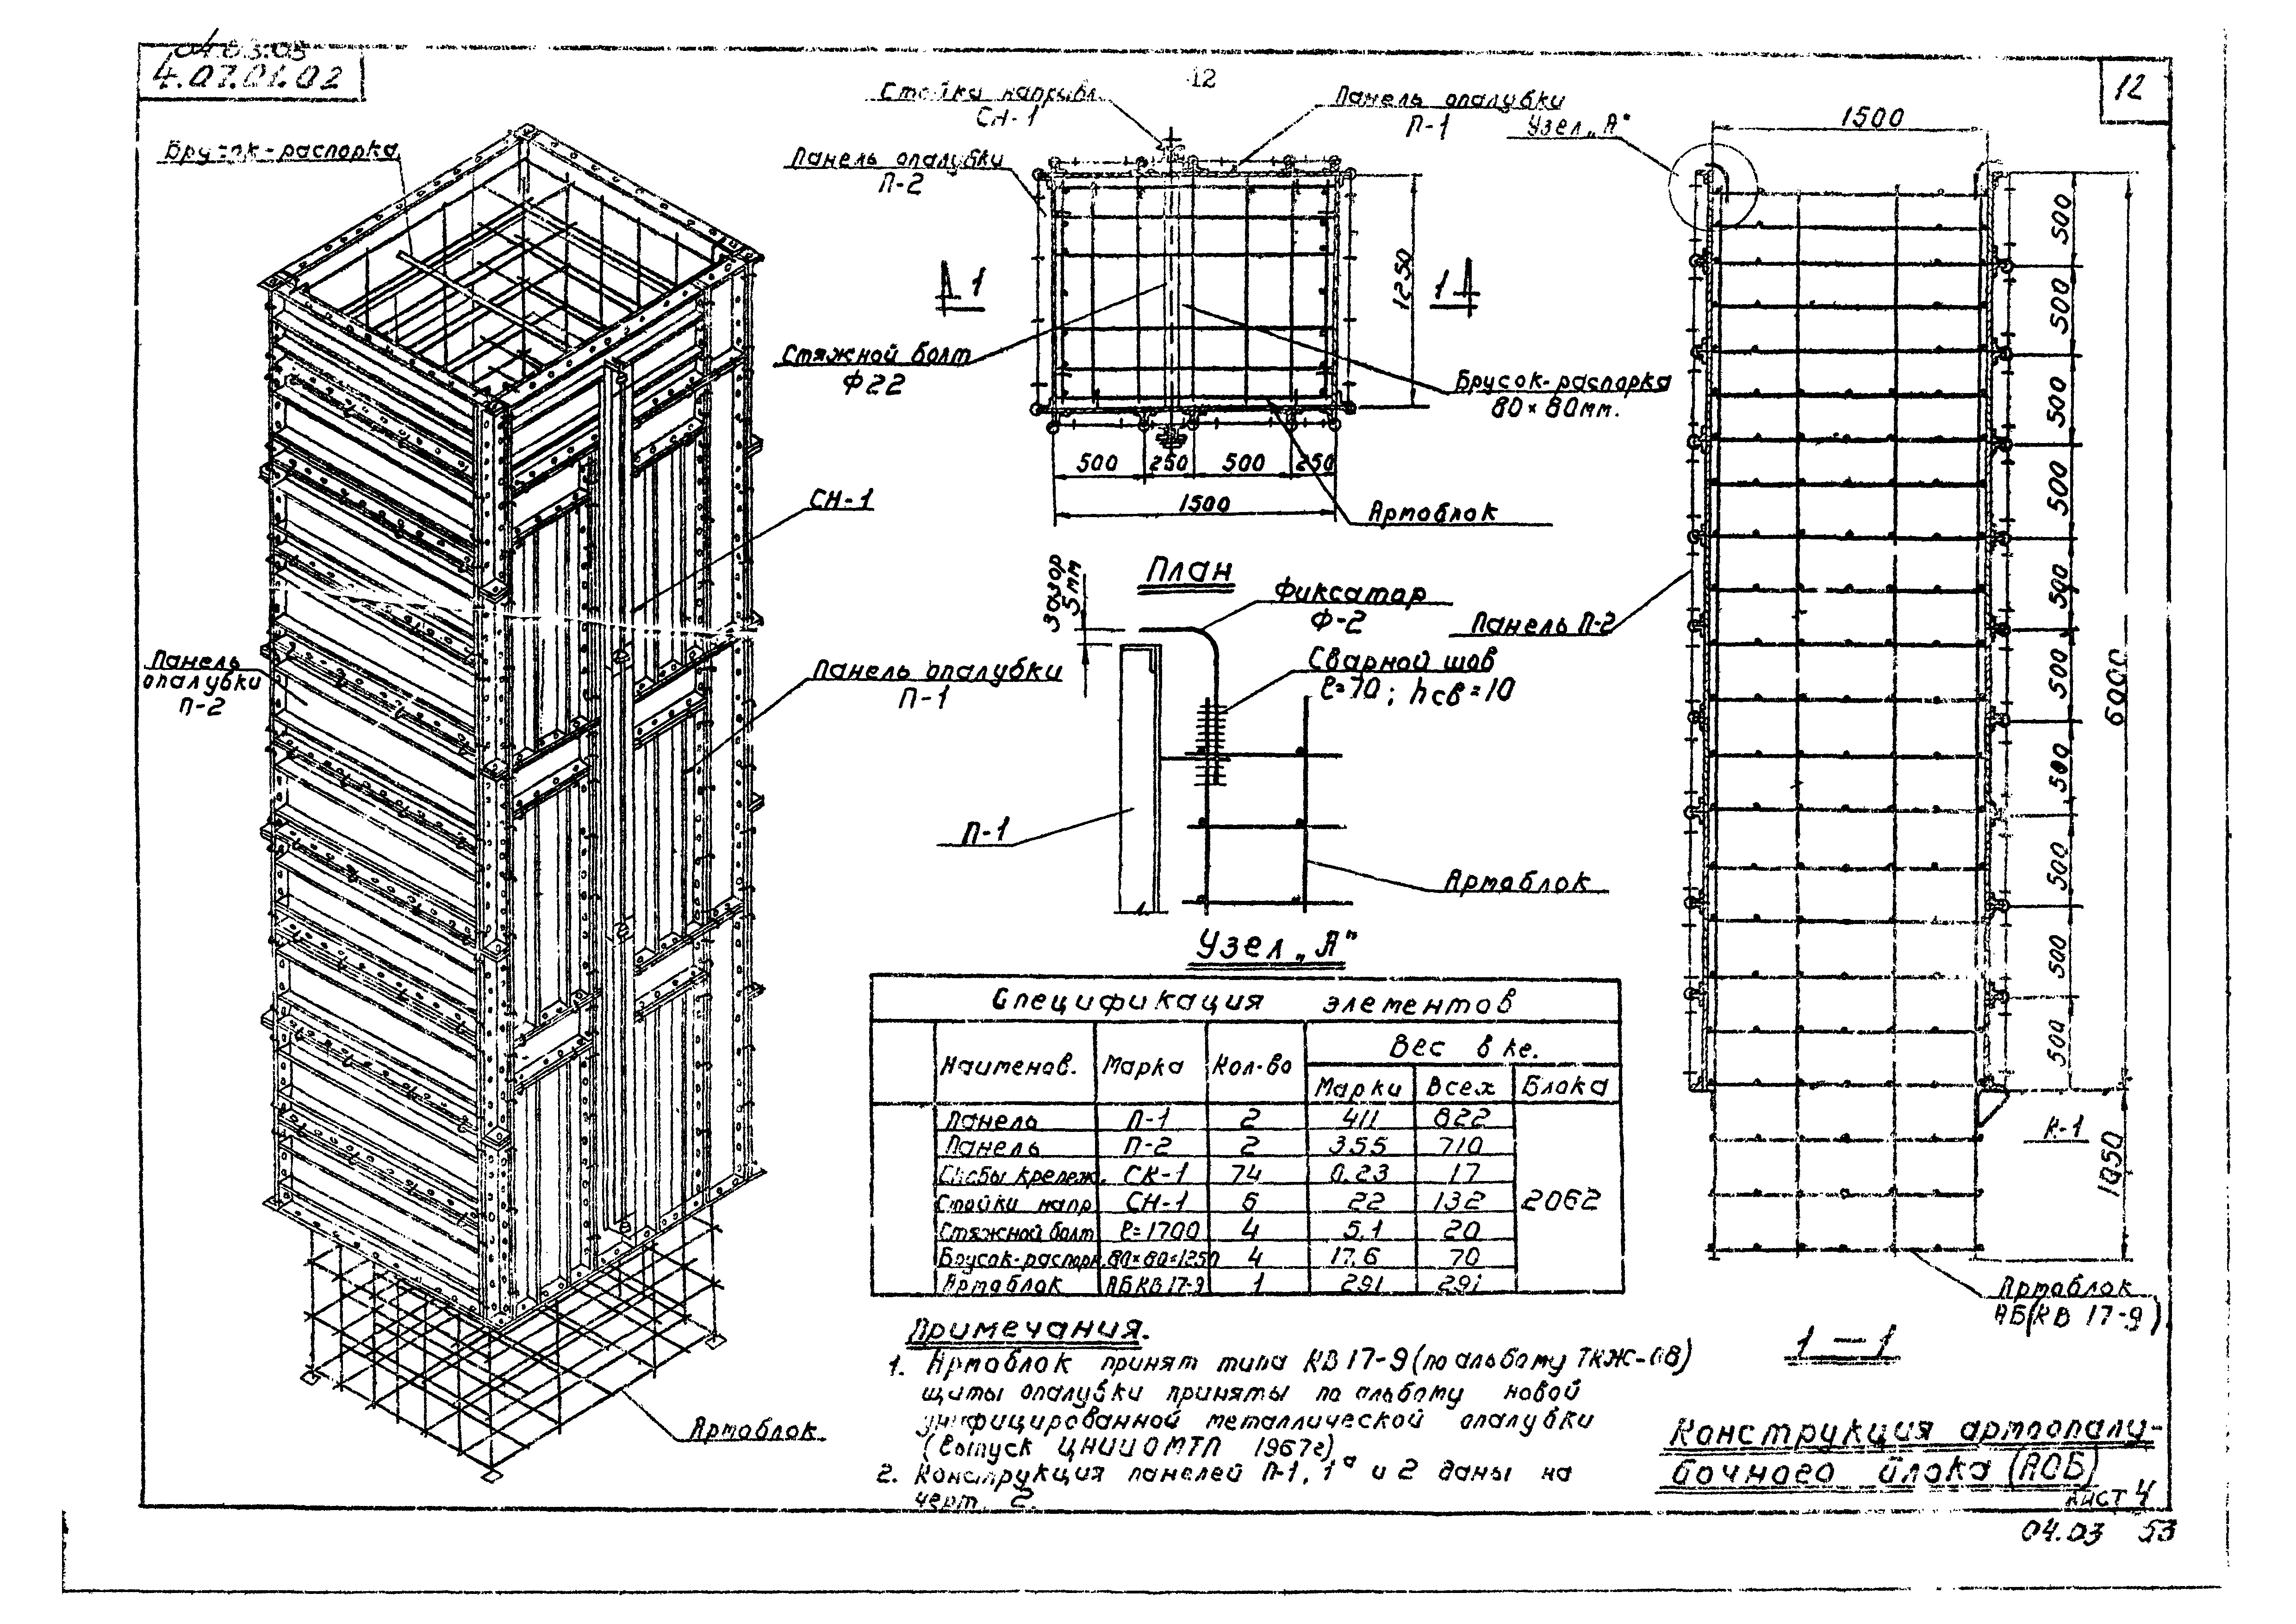 04.03.05
4.07.01.02
12
12
Брусок-распорка
Стойка направл.
СН-1
Панель опалубки
П-1
Узел „А"
Панель опалубки
П-2
1500
1 1
1250
Стяжной болт
Ф22
Брусок-распорка
80×80мм.
500 250 500 250
1500
Армоблок
СН-1
План
зазор
5мм
Фиксатор
Ф-2
Сварной шов
ℓ=70; hсв=10
Панель П-2
Панель
опалубки
П-2
Панель опалубки
П-1
П-1
Армоблок
Узел „А"
500
500
500
500
500
500
500
500
500
500
6000
1050
К-1
Спецификация элементов
Наименов. Марка Кол-во Вес в кг.
Марки Всех Блока
Панель П-1 2 411 822
Панель П-2 2 355 710
Скобы крепеж. СК-1 74 0.23 17
Стойки напр СН-1 6 22 132 2062
Стяжной болт ℓ=1700 4 5,1 20
Брусок-распорк. 80×80=1250 4 17,6 70
Армоблок АБКВ17-9 1 291 291
Армоблок
АБ(КВ 17-9)
1 — 1
Армоблок
Примечания.
1. Армоблок принят типа КВ17-9(по альбому ТКЖ-08)
щиты опалубки приняты по альбому новой
унифицированной металлической опалубки
(выпуск ЦНИИОМТП 1967г)
2. Конструкция панелей П-1, 1а и 2 даны на
черт. 2.
Конструкция армоопалу-
бочного блока (АОБ)
лист 4
04.03 53